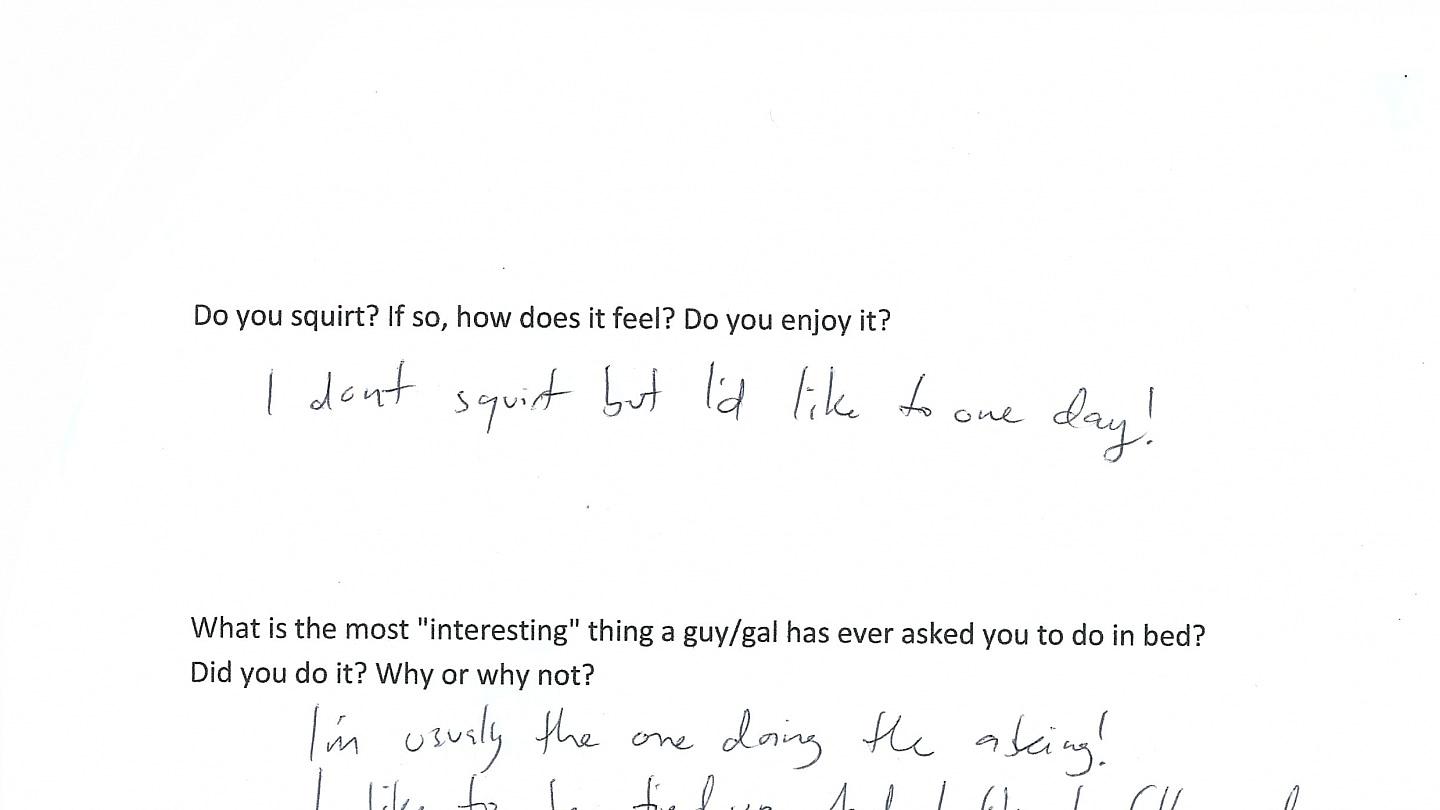 Do you squirt? If so, how does it feel? Do you enjoy it?
I dont squirt but I'd like to one day!
What is the most "interesting" thing a guy/gal has ever asked you to do in bed?
Did you do it? Why or why not?
I'm usually the one doing the asking!
I like to be tied up